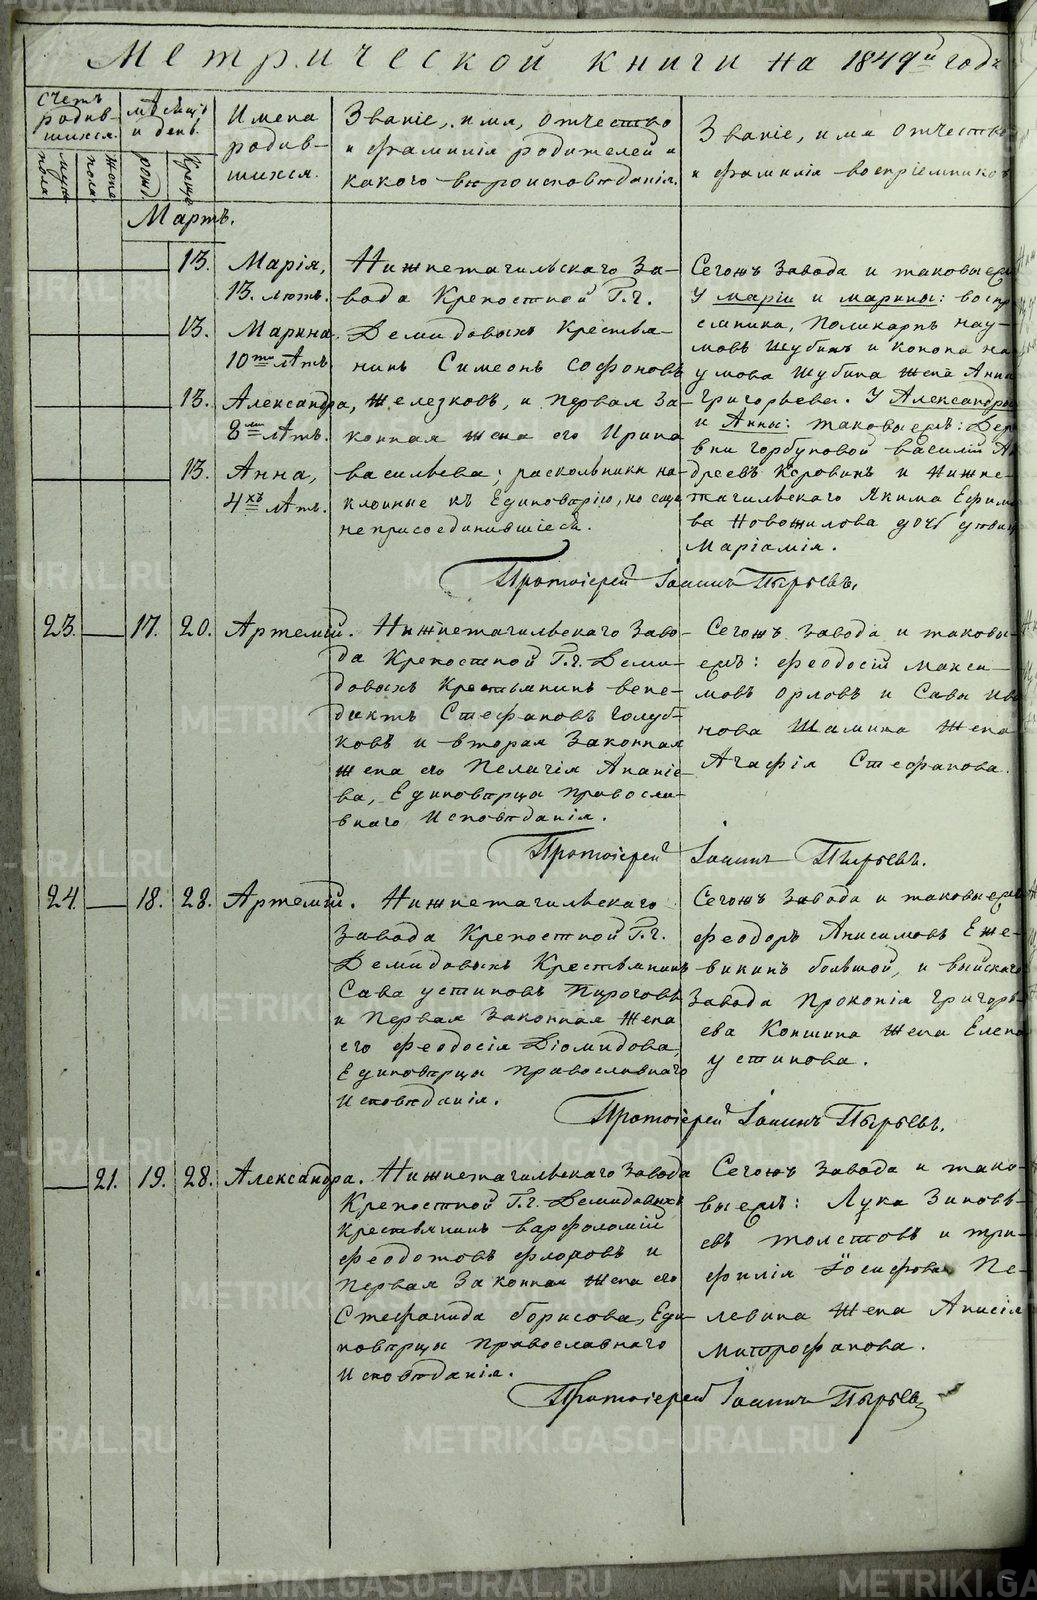 Метрической книги на 1849й годъ
Счетъ родив-шихся.
муж. пола.
жен. пола.
Мѣсяцъ и день.
рожд.
Крещ.
Имена
родив-
шихся.
Званіе, имя, отчество
и фамилія родителей и
какого вѣроисповѣданія.
Званіе, имя отчество
и фамилія воспріемниковъ
Мартъ.
13. Марія,
13. лѣтъ.
13. Марина.
10ти лѣтъ.
13. Александра,
8ми лѣтъ.
13. Анна,
4хъ лѣтъ.
Нижнетагильскаго За-
вода Крепостной Г.г.
Демидовыхъ Крестья-
нинъ Симеонъ Софоновъ
Железковъ, и первая За-
конная жена его Ирина
васильева; раскольники на-
клонные къ Единовѣрію, но еще
неприсоединившіеся.
Сегожъ завода и таковыеже
У Маріи и Марины: воспр
емники, Поликарпъ нау-
мовъ Шубинъ и Конона на
умова Шубина жена Анна
Григорьева. У Александры
и Анны: таковыежъ: Дер
вни горбуновой василій Ан
дреевъ Коровинъ и Нижне-
тагильскаго Якима Ефимо
ва Новожилова дочь девица
Маріамія.
Протоіерей Іоаннъ Пырьевъ.
23. 17. 20. Артемій.
Нижнетагильскаго Заво-
да Крепостной Г.г. Деми-
довыхъ Крестьянинъ вене-
диктъ Стефановъ Голуб-
ковъ и вторая Законная
жена его Пелагія Ананіе-
ва, Единовѣрцы Правосла-
внаго Исповѣданія.
Сегожъ завода и таковы-
ежъ: Феодосій Макси-
мовъ Орловъ и Савы Ива
нова Шамина жена
Агафія Стефанова.
Протоіерей Іоаннъ Пырьевъ.
24. 18. 28. Артемій.
Нижнетагильскаго
Завода Крепостной Г.г.
Демидовыхъ Крестьянинъ
Сава устиновъ Пироговъ
и Первая Законная Жена
его Феодосія Діомидова,
Единовѣрцы Православнаго
Исповѣданія.
Сегожъ Завода и таковыежъ
Феодоръ Анисимовъ Еже-
викинъ большой, и выйскаго
Завода Прокопія Григорь-
ева Коншина жена Елена
устинова.
Протоіерей Іоаннъ Пырьевъ.
21. 19. 28. Александра.
Нижнетагильскаго Завода
Крепостной Г.г. Демидовыхъ
Крестьянинъ варфоломій
Феодотовъ Флоровъ и
Первая Законная жена его
Стефанида борисова, Еди-
новѣрцы Православнаго
Исповѣданія.
Сегожъ завода и тако-
выежъ: Лука Зиновь-
евъ толстовъ и три-
филія Іосифова Пе-
левина жена Анисія
Митрофанова.
Протоіерей Іоаннъ Пырьевъ
METRIKI.GASO-URAL.RU